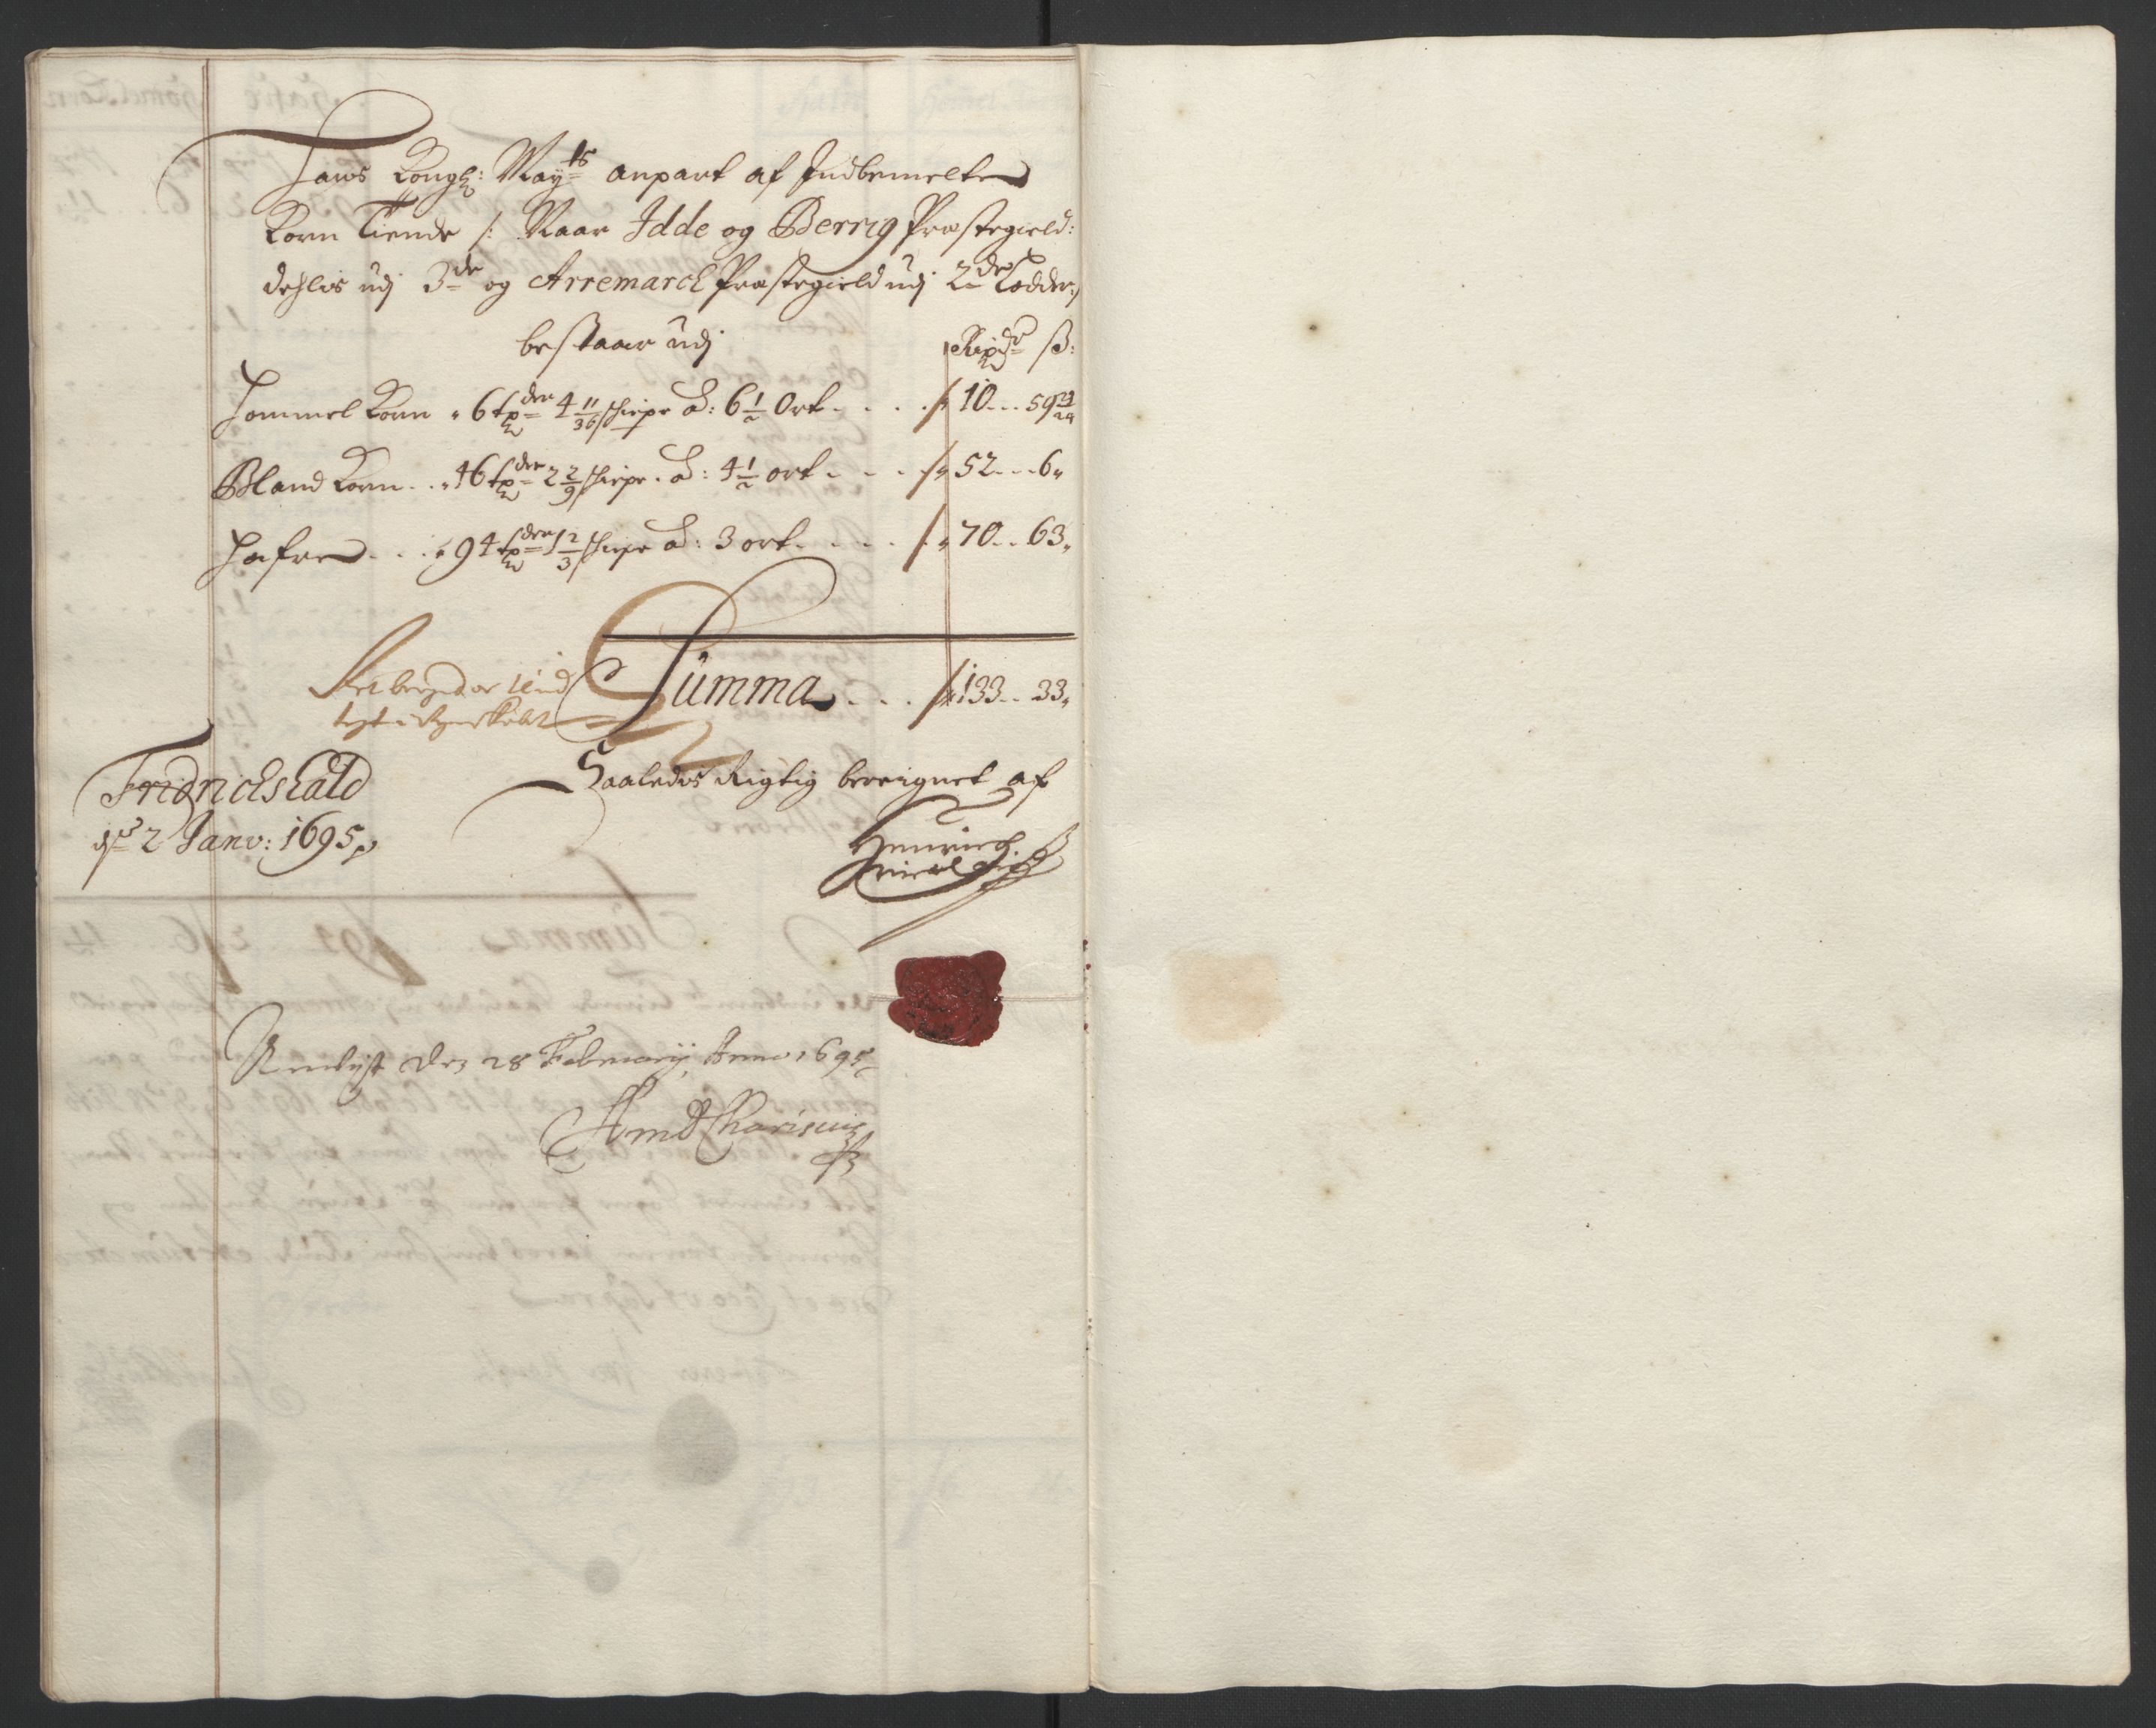 Hans Kongl: Mayts anpart af Indbemelte
Korn Tiende /: Naar Idde og Berrig Præstegield:
dehlis udj 3de og Arremarck Præstegield udj 2de Lodder:/
bestaar udj
Rixdr ß:
Hommel Korn . 6 tdr 4 11/36 skiepe a: 6 1/2 Ort . . . . 10 . . . 59 23/24
Bland Korn . . 46 tdr 2 2/9 skiepe . a: 4 1/2 ort . . . . 52 . . . 6
Hafre . . . 94 tdr 1 2/3 skiepe a: 3 ort . . . . 70 . . 63
Summa . . . 133 . . 33
Saaledis Rigtig bereignet af
Fridrichshald
d 2 Janv: 1695
Henrich
den 28 Februarij Anno 1695